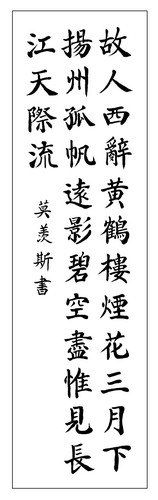 故人西辭黃鶴樓煙花三月下
揚州孤帆遠影碧空盡惟見長
江天際流
莫羨斯書